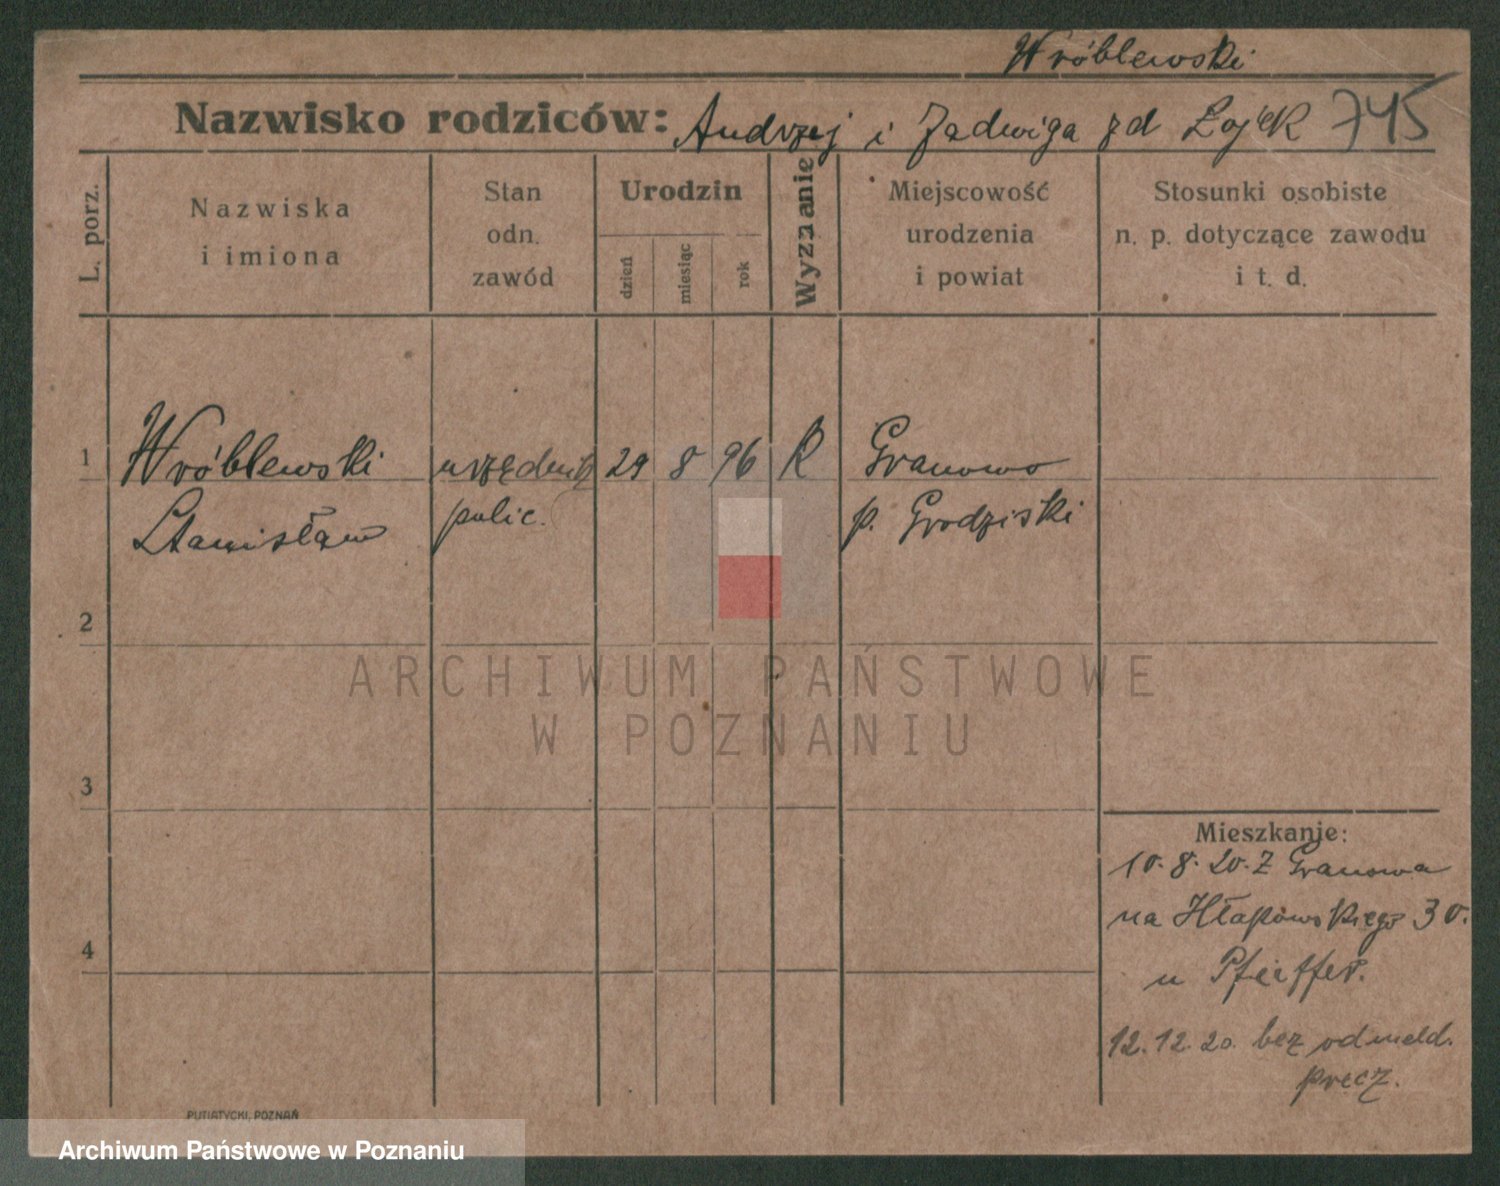 Wróblewski
Nazwisko rodziców: Andrzej i Jadwiga zd Łojek 745
L. porz.
Nazwiska
i imiona
Stan
odn.
zawód
Urodzin
dzień
miesiąc
rok
Wyznanie
Miejscowość
urodzenia
i powiat
Stosunki osobiste
n. p. dotyczące zawodu
i t. d.
1 Wróblewski urzędnik 29 8 96 K Granowo
Stanisław polic. p. Grodziski
2
ARCHIWUM PAŃSTWOWE
W POZNANIU
3
Mieszkanie:
10.8.20. Z Granowa
na Hłapowskiego 30.
4
u Pfeiffer.
12.12.20. bez odmeld.
precz.
PUTIATYCKI, POZNAŃ
Archiwum Państwowe w Poznaniu